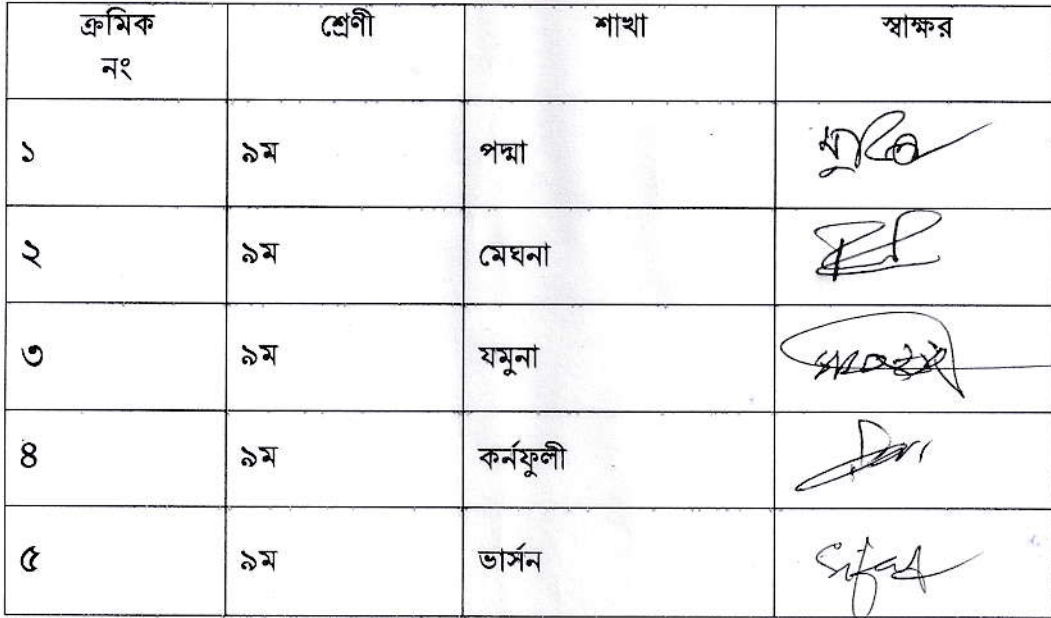 ক্রমিক নং শ্রেণী শাখা স্বাক্ষর
১ ৯ম পদ্মা
২ ৯ম মেঘনা
৩ ৯ম যমুনা
৪ ৯ম কর্নফুলী
৫ ৯ম ভার্সন Sifat